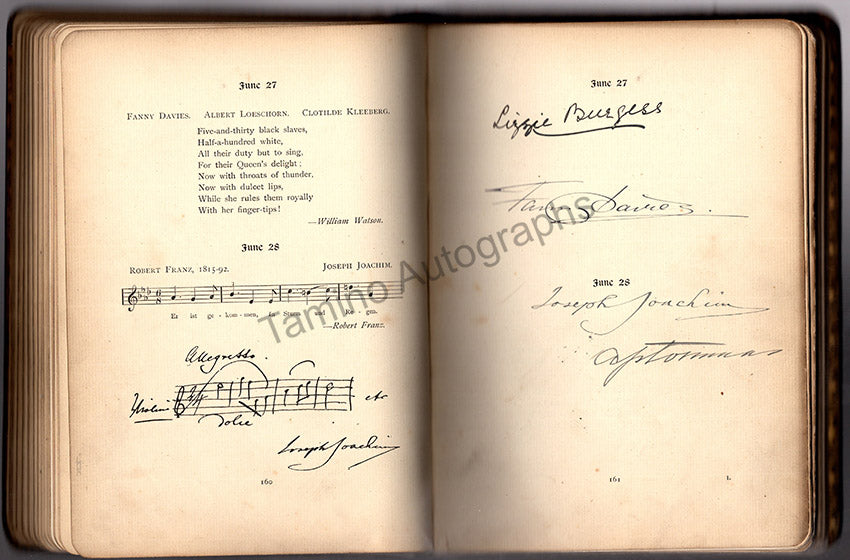 June 27
FANNY DAVIES. ALBERT LOESCHORN. CLOTILDE KLEEBERG.
Five-and-thirty black slaves,
Half-a-hundred white,
All their duty but to sing,
For their Queen's delight;
Now with throats of thunder,
Now with dulcet lips,
While she rules them royally
With her finger-tips!
—William Watson.
June 28
ROBERT FRANZ, 1815-92. JOSEPH JOACHIM.
Er ist ge - kom - men, in Sturm und Re - gen.
—Robert Franz.
Allegretto.
Violini
dolce
etc
Joseph Joachim
160
June 27
Lizzie Burgess
Fanny Davies.
June 28
Joseph Joachim
Aptommas
161
L
Tamino Autographs